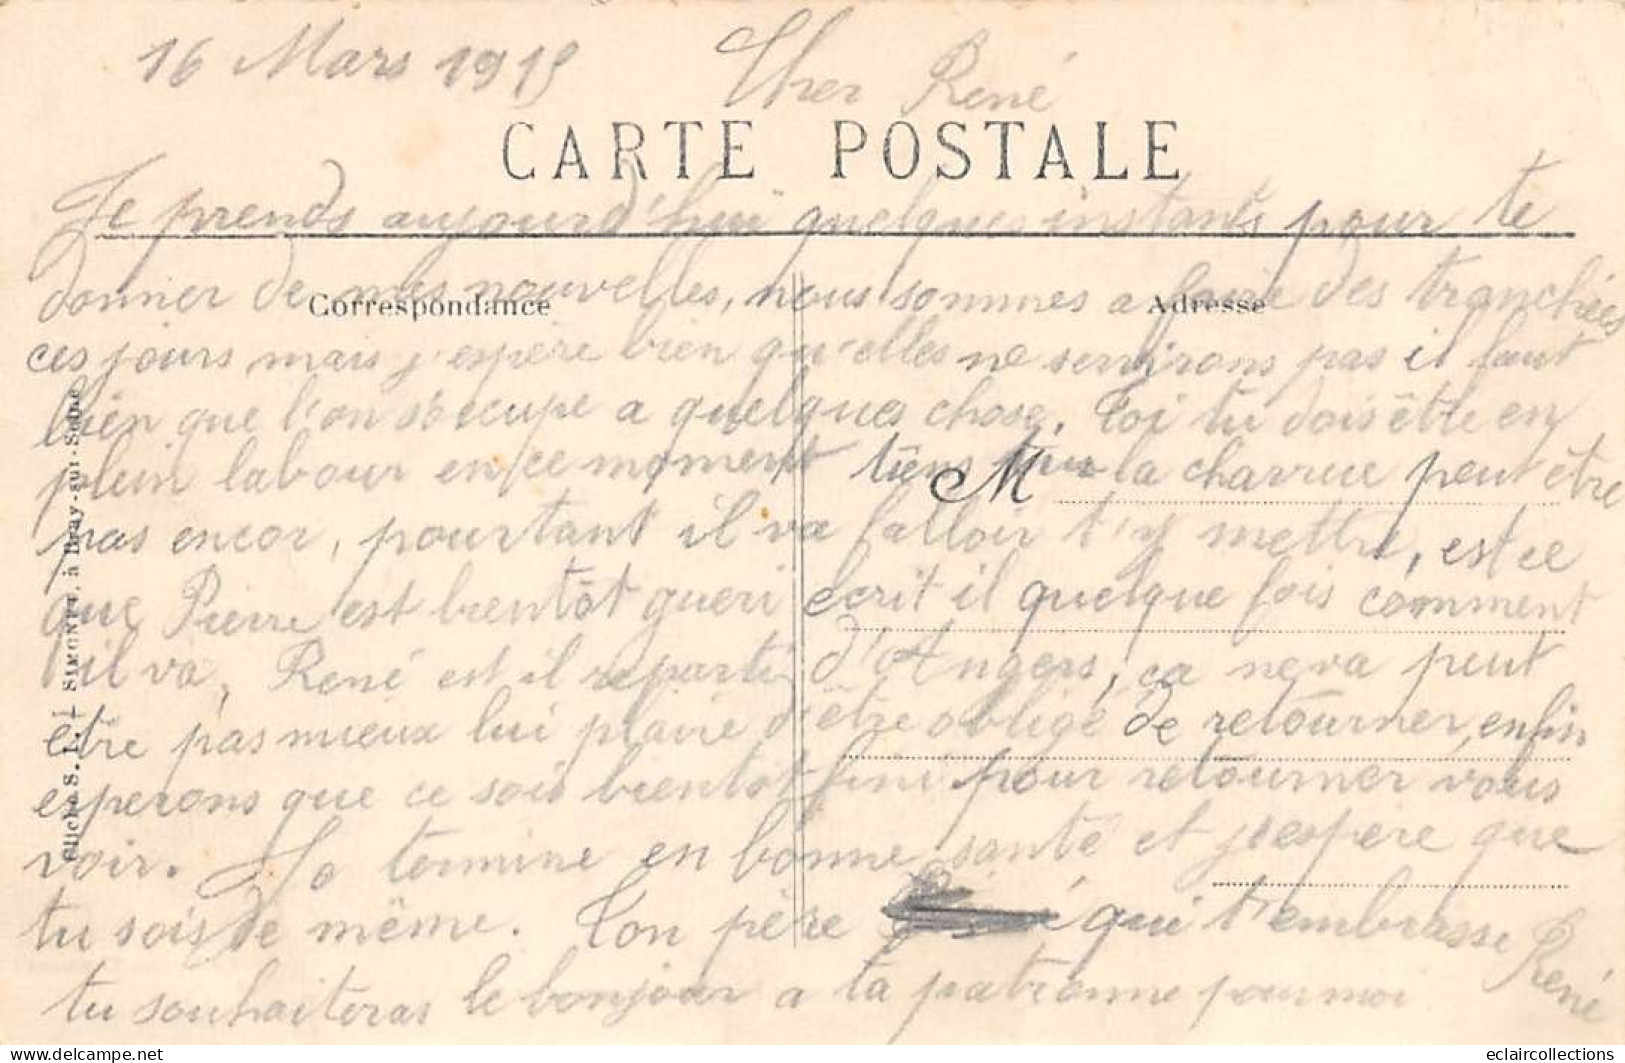 16 Mars 1915 Cher René
CARTE POSTALE
Je prends aujourd'hui quelques instants pour te
donner de mes nouvelles, nous sommes a faire des tranchées
Correspondance
Adresse
ces jours mais j'espère bien qu'elles ne serviront pas il faut
bien que l'on s'occupe a quelques chose. Toi tu dois être en
plein labour en ce moment tiens tu la charrue peut être
M
pas encor, pourtant il va falloir t'y mettre, est ce
que Pierre est bientôt gueri écrit il quelque fois comment
il va, René est il reparti d'Angers, ca ne va peut
etre pas mieux lui plaire d'être obligé de retourner, enfin
esperons que ce sois bientot fini pour retourner vous
voir. Je termine en bonne santé et j'espere que
tu sois de même. Ton père qui t'embrasse
René
tu souhaiteras le bonjour a ta patronne pour moi
Cliché S. L. - SIMONET, à Bray-sur-Seine
eclaircollections